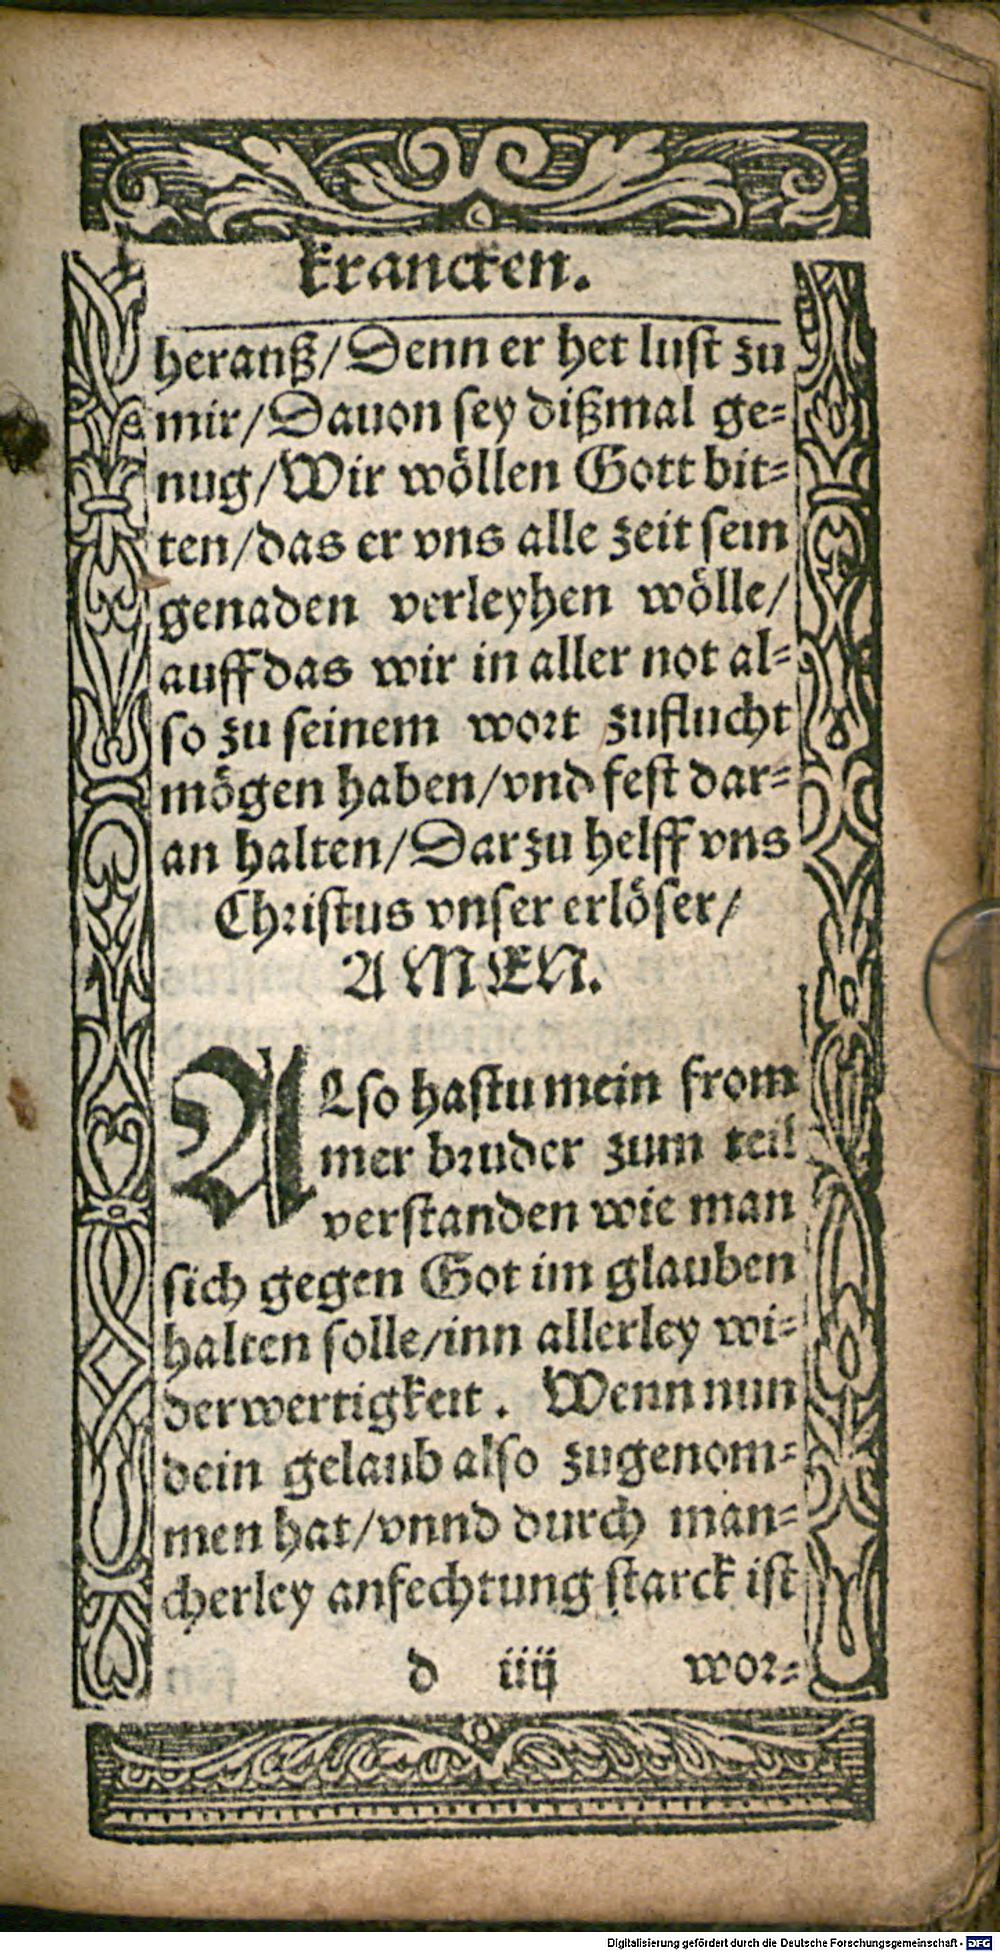 krancken.
herauß/Denn er het lust zu
mir/Dauon sey dißmal ge-
nug/Wir wöllen Gott bit-
ten/das er vns alle zeit sein
genaden verleyhen wölle/
auff das wir in aller not al-
so zu seinem wort zuflucht
mögen haben/vnd fest dar-
an halten/Darzu helff vns
Christus vnser erlöser/
AMEN.
ALso hastu mein from
mer bruder zum teil
verstanden wie man
sich gegen Got im glauben
halten solle/inn allerley wi-
derwertigkeit. Wenn nun
dein gelaub also zugenom-
men hat/vnnd durch man-
cherley anfechtung starck ist
d iiij wor-
Digitalisierung gefördert durch die Deutsche Forschungsgemeinschaft - DFG